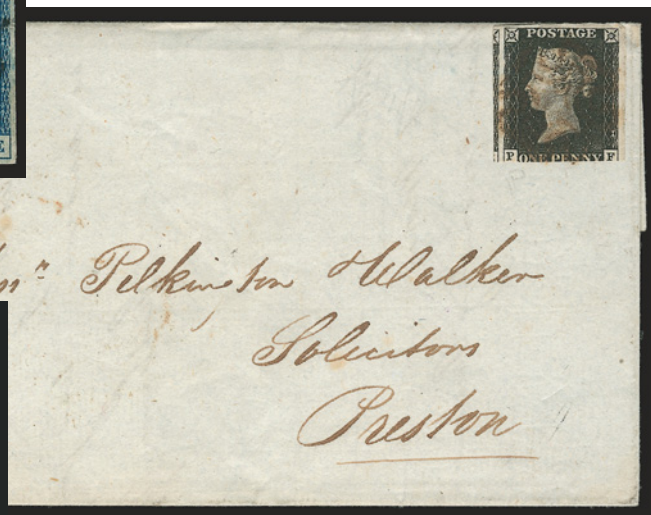 POSTAGE
P ONE PENNY F
Pilkington & Walker
Solicitors
Preston